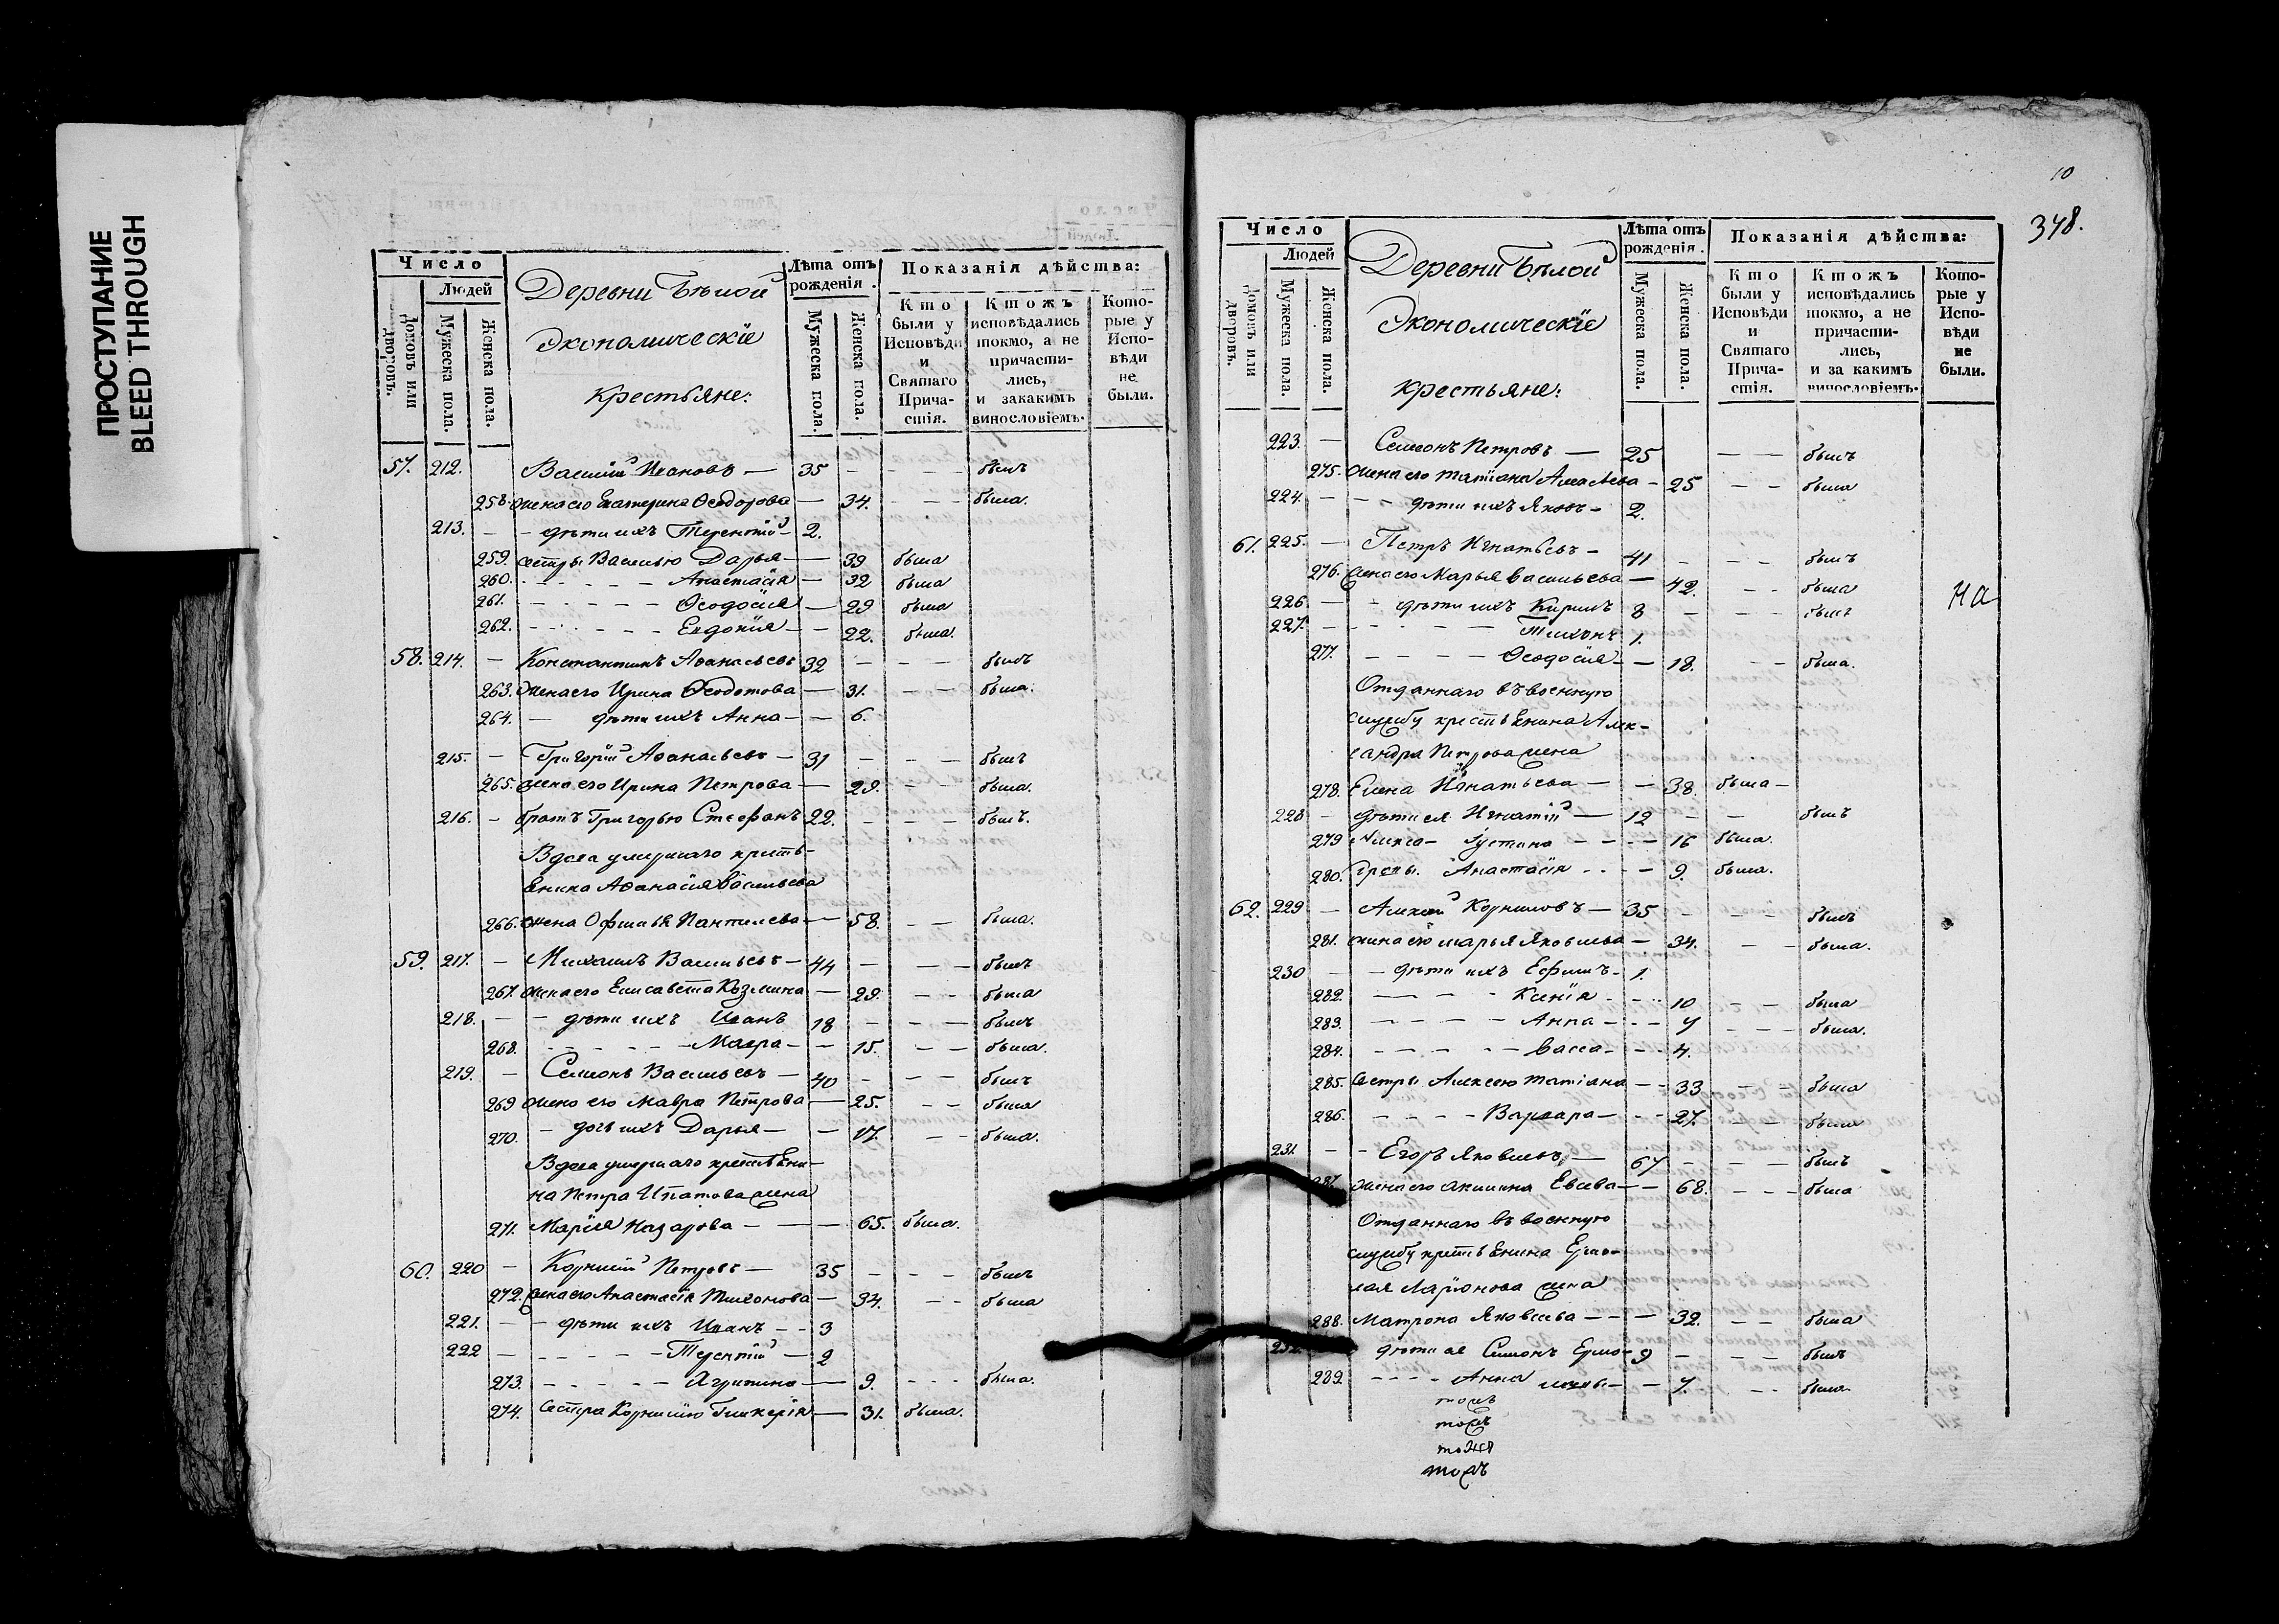 ПРОСТУПАНИЕ
BLEED THROUGH
Число
Людей
домовъ или дворовъ.
Мужеска пола.
Женска пола.
Деревни Бѣлой
Экономическіе
крестьяне:
Лѣта отъ рожденія.
Мужеска пола.
Женска пола.
Показанія дѣйства:
Кто были у Исповѣди и Святаго Причастія.
Ктожъ исповѣдались токмо, а не причастились, и закакимъ винословіемъ.
Которые у Исповѣди не были.
57. 212. Василій Ивановъ — 35 - - - - былъ
258. жена его Екатерина Ѳеодорова — 34. - - - была.
213. - - дѣти ихъ Терентій - 2.
259. сестры Василью Дарья — 39 была
260. - - - - - Анастасія — 32 была
261. - - - - - Ѳеодосія — 29 была
262. - - - - - - Евдокія — 22. была.
58. 214. — Константинъ Аѳанасьевъ 32 - - - былъ
263. жена его Ирина Ѳеодотова — 31. - - была.
264. — дѣти ихъ Анна — - 6.
215. — Григорій Аѳанасьевъ — 31 - - - былъ
265. жена его Ирина Петрова — 29. - - была.
216. - братъ Григорью Стефанъ 22. - - - былъ.
Вдова умершаго кресть-
янина Аѳанасія Васильева
266. жена Офимья Пантилева — 58. - - была.
59. 217. — Михаилъ Васильевъ — 44 - - - былъ
267. жена его Елисавета Козмина — 29. - - была
218. - - дѣти ихъ Иванъ 18 - - - былъ
268. - - - - - - Мавра — - 15. - - была.
219. — Семионъ Васильевъ — 40 - - - былъ
269 жена его Мавра Петрова — 25. - - была
270. - дочь ихъ Дарья — - 17. - - была.
Вдова умершаго крестьяни-
на Петра Ипатова жена
271. Марія Назарова — - - 65. была.
60. 220 — Корнилій Петровъ — 35 - - - былъ
272. жена его Анастасія Тихонова — 34. - - была
221. - - дѣти ихъ Иванъ - - 3
222 - - - - - - Терентій — 2
273. - - - - - Агрипина — 9. - - - была.
274. Сестра Корнилію Гликерія — 31. была.
10
348.
Число
Людей
домовъ или дворовъ.
Мужеска пола.
Женска пола.
Деревни Бѣлой
Экономическіе
крестьяне:
Лѣта отъ рожденія.
Мужеска пола.
Женска пола.
Показанія дѣйства:
Кто были у Исповѣди и Святаго Причастія.
Ктожъ исповѣдались токмо, а не причастились, и за какимъ винословіемъ.
Которые у Исповѣди не были.
223. — Семионъ Петровъ — 25 - - былъ
275. жена его Татіана - 25 - - была
224. - - - дѣти ихъ Яковъ - 2.
61. 225. — Петръ Игнатьевъ - 41 - - - былъ
276. жена его Марья Васильева — 42. - - была
226 — - дѣти ихъ Кирилъ 8 - - - былъ
227. - - - - - Тихонъ 1.
277. - - - - Ѳеодосія - - 18. - - была.
на
Отданнаго въ военную
службу крестьянина Алек-
сандра Петрова жена
278. Елена Игнатьева — - 38. была -
228 - дѣти ея Игнатій — 12 - - былъ
279 Алекса- Іустина - - - 16 была.
280. ндровы. Анастасія - - - 9. была.
62. 229 — Алексей Корниловъ — 35 - - - былъ
281. жена его Марья Яковлева — 34. - - была.
230 - - дѣти ихъ Ефимъ - 1.
282. - - - - Ксенія - - - 10 - - была
283. - - - - Анна - - - 7 - - - была.
284. - - - - - Васса - - - 4.
285. сестры Алексею Татіана - - 33 - - была
286. - - - - Варвара — - - 27. - - была
231 - - Егоръ Яковлевъ — 67 - - - былъ
287. жена его Акилина Евсева — - 68. - - - была
Отданнаго въ военную
службу крестьянина Ермо-
лая Ларіонова жена
288. Матрона Яковлева - - — 32. - - была
232. дѣти ея Семионъ Ермо- 9 - - - былъ
289. - - - - Анна лаевы - - 7. - - была
тожъ
тожъ
тожъ
тожъ